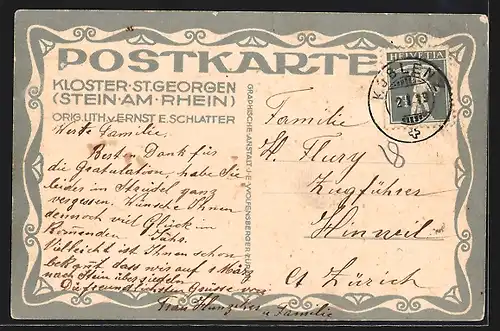 POSTKARTE
KLOSTER·ST.GEORGEN
(STEIN·AM·RHEIN)
ORIG. LITH. v. ERNST E. SCHLATTER
Werte Familie.
Besten Dank für
die Gratulation, habe Sie
leider im Strudel ganz
vergessen. Wünsche Ihnen
dennoch viel Glück im
kommenden Jahr.
Vielleicht ist Ihnen schon
bekannt, dass wir auf 1 März
nach Stein übersiedeln
Die freundlichsten Grüsse von
Frau Hunziker u. Familie
GRAPHISCHE·ANSTALT·J·E·WOLFENSBERGER·ZÜRICH
HELVETIA
KOBLENZ
Familie
H. Flury
Zugführer
Hinweil
Ct Zürich